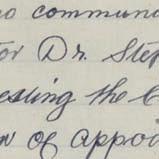 to commun
for Dr. Step
esting the C
n of appoi